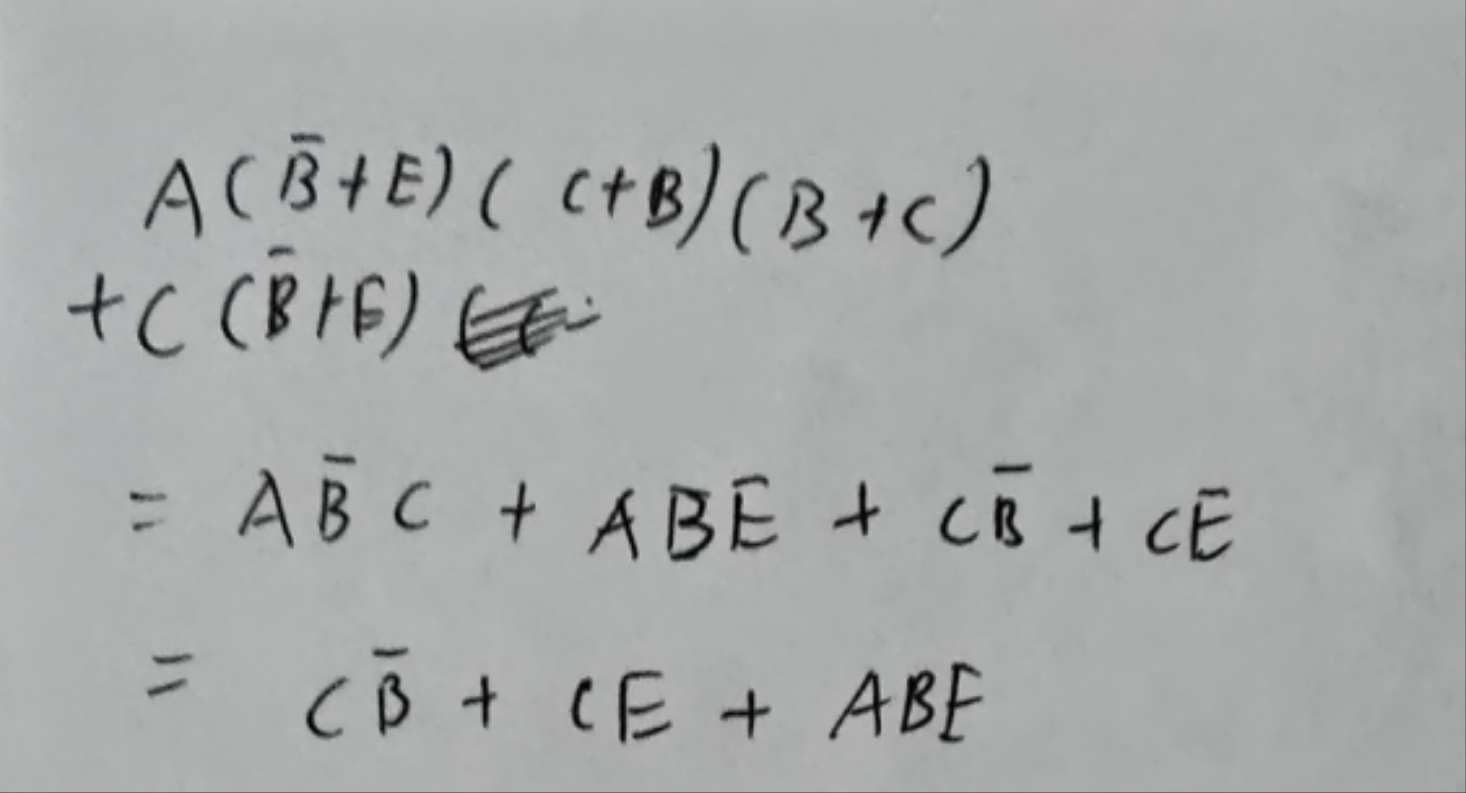 A(B̄+E)(C+B)(B+C)
+C(B̄+E)
= AB̄C + ABE + CB̄ + CE
= CB̄ + CE + ABE